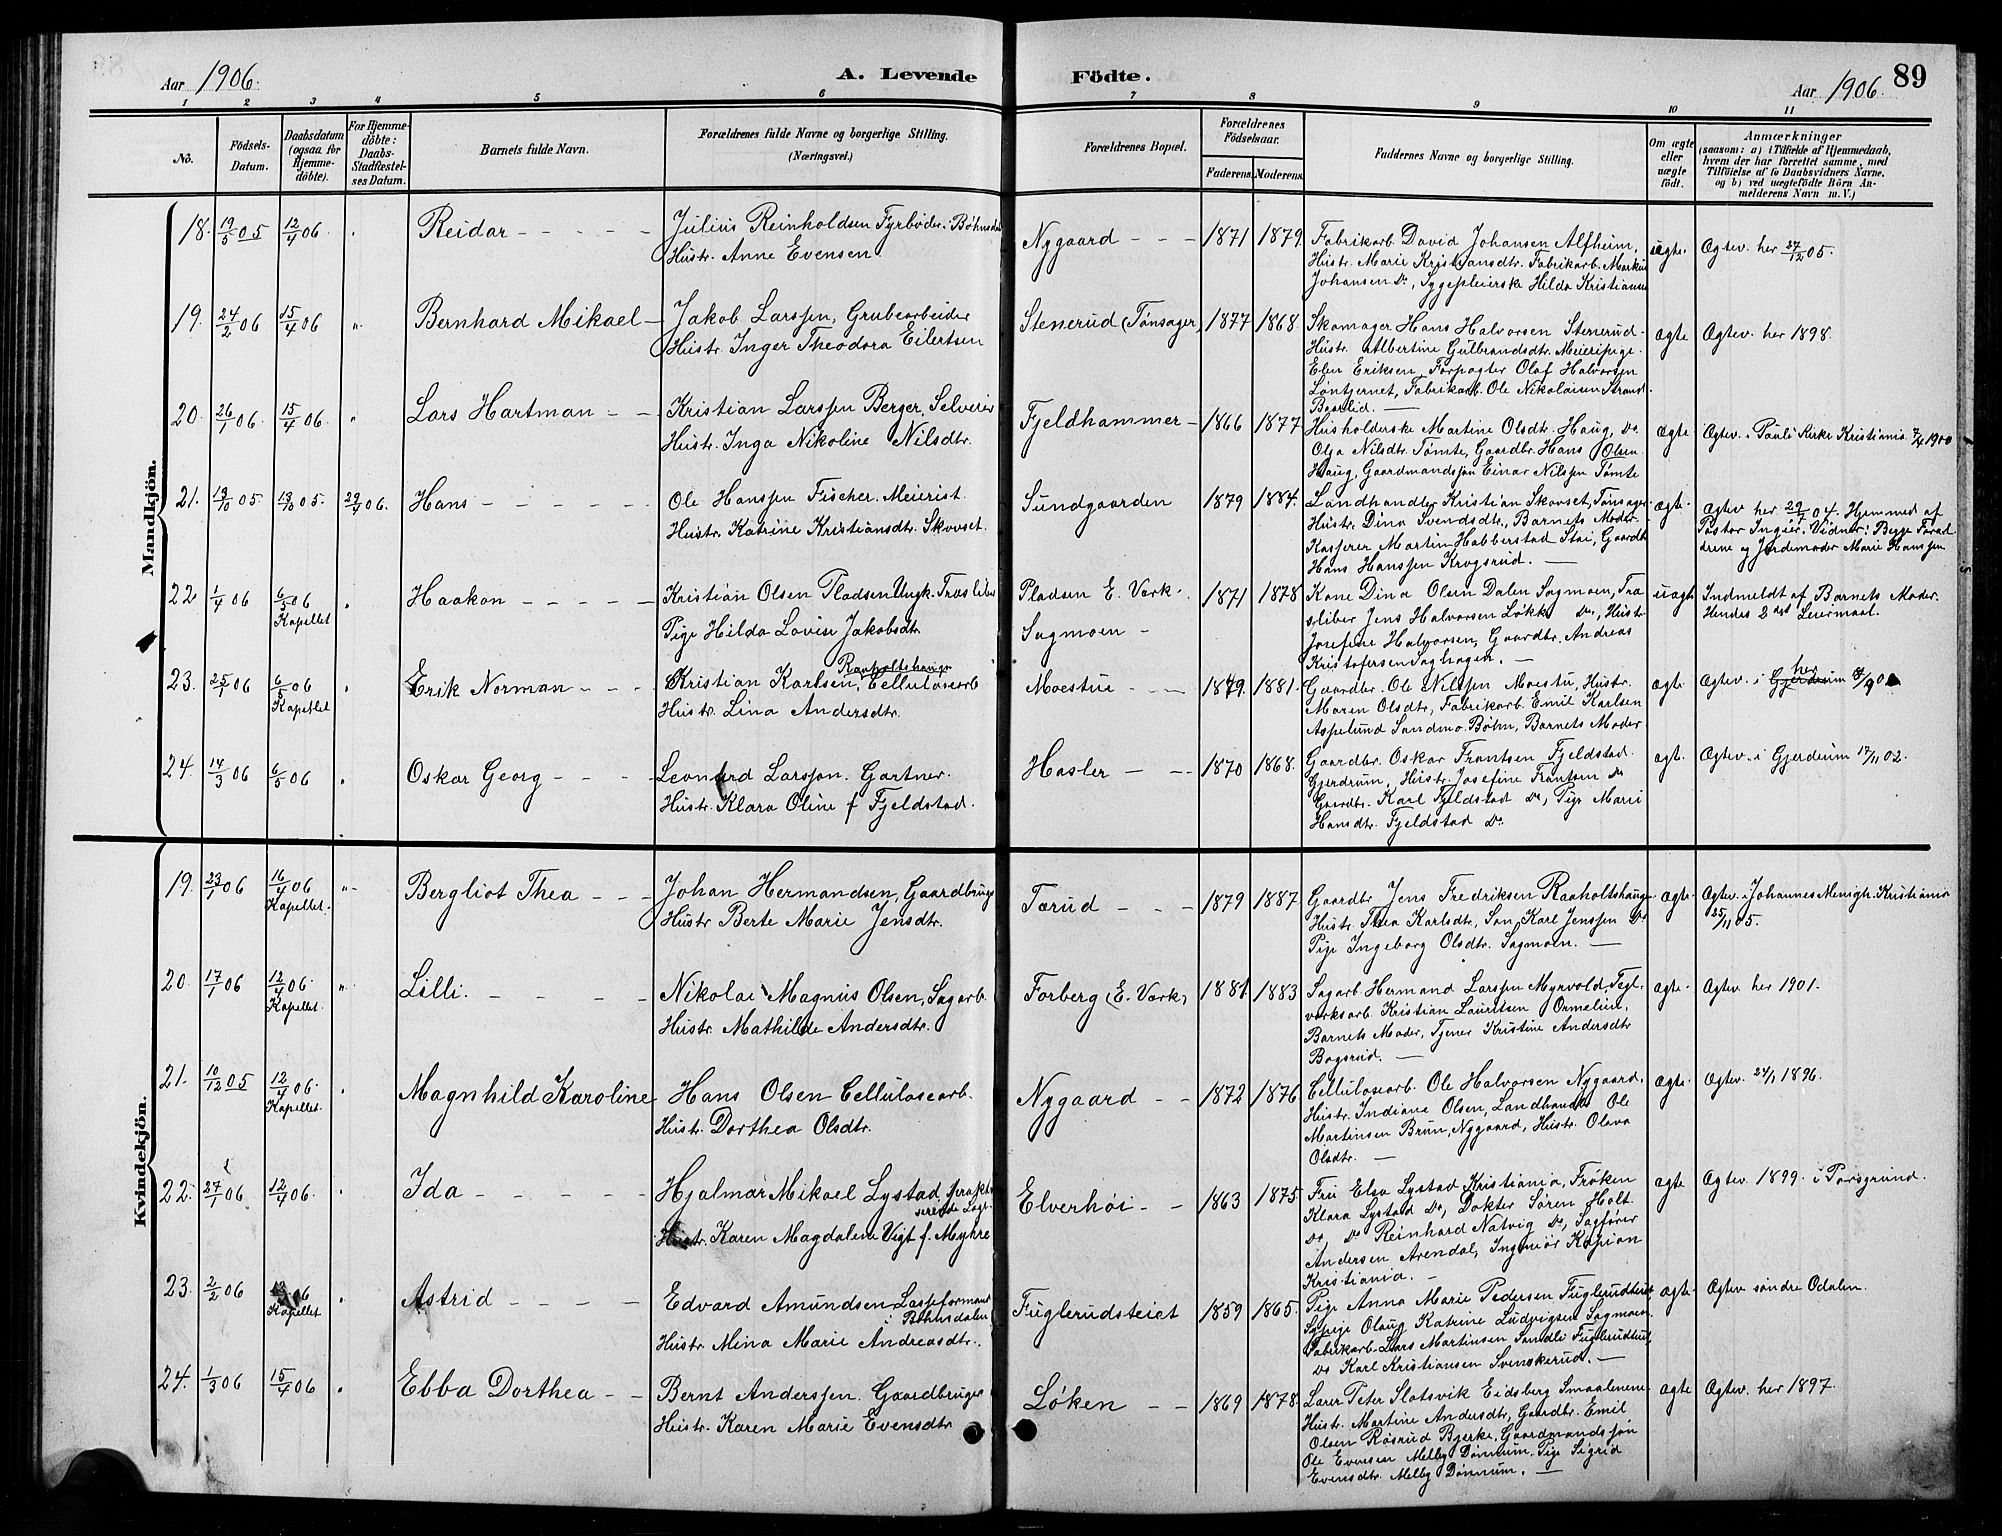 Aar 1906. A. Levende Födte. Aar 1906. 89
1 2 3 4 5 6 7 8 9 10 11
No. Födsels-Datum. Daabsdatum (ogsaa for Hjemmedöbte). For Hjemmedöbte: Daabs-Stadfæstelses Datum. Barnets fulde Navn. Forældrenes fulde Navne og borgerlige Stilling. (Næringsvei.) Forældrenes Bopæl. Forældrenes Födselsaar. Faderens. Moderens. Faddernes Navne og borgerlige Stilling. Om ægte eller uægte födt. Anmærkninger (saasom: a) i Tilfælde af Hjemmedaab, hvem der har forrettet samme, med Tilföielse af to Daabsvidners Navne, og b) ved uægtefödte Börn Anmelderens Navn m. V.)
Mandkjön.
18. 19/5 05 12/4 06. Reidar
Julius Reinholdsen Fyrbøder i Bøhnsdal
Hustr. Anne Evensen.
Nygaard 1871 1879.
Fabrikarb. David Johansen Alfheim,
Hustr. Marie Kristiansdtr. Fabrikarb. Markus
Johansen Do, Sygepleierske Hilda Kristiansen
uægte. Ægtev. her 27/12 05.
19. 24/2 06 15/4 06 " Bernhard Mikael
Jakob Larssen, Grubearbeider
Hustr. Inger Theodora Eilertsen
Stenerud (Tønsager) 1877 1868.
Skomager Hans Halvorsen Stenerud
Hustr. Albertine Gulbrandsdtr. Meieripige
Elen Eriksen, Forpagter Olaf Halvorsen
Løntjernet, Fabrikarb. Ole Nikolaisen Strand
Baarlid.
ægte Ægtev. her 1898.
20. 26/1 06. 15/4 06. " Lars Hartman
Kristian Larssen Berger, Selveier
Hustr. Inga Nikoline Nilsdtr.
Fjeldhammer 1866 1877
Husholderske Martine Olsdtr. Haug, Do
Olga Nilsdtr. Tømte, Gaardbr. Hans Olsen
Haug, Gaardmandssøn Einar Nilssen Tømte
ægte Ægtev. i Pauli Kirke Kristiania 7/4 1900
21. 19/10 05 19/10 05 29/4 06. Hans
Ole Hanssen Fischer. Meierist.
Hustr. Katrine Kristiansdtr. Skovset.
Sundgaarden 1879 1884.
Landhandler Kristian Skovset, Tønsager
Hustr. Dina Svendsdtr., Barnets Moder
Kasserer Martin Habberstad Stai, Gaardbr
Hans Hanssen Krogsrud.
ægte. Ægtev her 29/7 04. Hjemmed. af
Pastor Ingier. Vidner: Begge Foræl
drene og Jordemoder Marie Hanssen
22 1/4 06 6/5 06 Kapellet Haakon
Kristian Olsen Pladsen Ungk. Træsliber
Pige Hilda Lovise Jakobsdtr.
Pladsen E. Værk.
Sagmoen 1871 1878
Kone Dina Olsen Dalen Sagmoen, Træ
sliber Jens Halvorsen Løkke Do, Hustr
Josefine Halvorsen, Gaardbr. Andreas
Kristofersen Saghagen.
uægte Indmeldt af Barnets Moder.
Hendes 2det Leiermaal.
23. 25/1 06 6/5 06 Kapellet Erik Norman
Raaholtshaugen
Kristian Karlsen, Cellulosearb
Hustr. Lina Andersdtr.
Moestue 1879. 1881.
Gaardbr. Ole Nilssen Moestu, Hustr.
Maren Olsdtr, Fabrikarb. Emil Karlsen
Aspelund Sandmo Bøhn, Barnets Moder
ægte Ægtev. i Gjerdrum her
24. 14/3 06 6/5 06 Oskar Georg
Leonard Larsson. Gartner.
Hustr. Klara Oline f Fjeldstad.
Hasler 1870 1868.
Gaardbr. Oskar Frantsen Fjeldstad
Gjerdrum, Hustr. Josefine Frantsen Do
Gaardbr. Karl Fjeldstad Do, Pige Marie
Hansdtr. Fjeldstad Do
ægt. Ægtev. i Gjerdrum 17/11 02.
Kvindekjön.
19. 23/1 06 16/4 06 Kapellet. Bergliot Thea
Johan Hermandsen, Gaardbruger
Hustr Berte Marie Jensdtr.
Tærud 1879 1887
Gaardbr Jens Fredriksen Raaholtshaugen
Hustr. Thea Karlsdtr, Søn Karl Jenssen Do
Pige Ingeborg Olsdtr. Sagmoen.
ægte. Ægtev. i Johannes Menigh. Kristiania
25/11 05.
20 17/1 06 12/4 06. Kapellet Lilli.
Nikolai Magnus Olsen, Sagarb.
Hustr. Mathilde Andersdtr.
Forberg (E. Værk) 1881 1883
Sagarb Hermand Larssen Myrvold, Tegl-
verksarb. Kristian Lauritsen Ormelien,
Barnets Moder, Tjener Kristine Andersdtr
Bøgsrud.
ægte. Ægtev her 1901.
21. 10/12 05 12/4 06. Kapellet. Magnhild Karoline
Hans Olsen Cellulosearb.
Hustr. Dorthea Olsdtr.
Nygaard 1872 1876
Cellulosearb. Ole Halvorsen Nygaard,
Hustr. Indiane Olsen, Landhandl Ole
Martinsen Brun, Nygaard, Hustr. Olava
Olsdtr.
ægte. Ægtev. 24/1 1896.
22. 27/1 06 12/4 06. Ida
Hjalmar Mikael Lystad, prakti
serende Læge.
Hustr. Karen Magdalene Vigt f. Myhre
Elverhøi 1863 1875
Fru Elsa Lystad Kristiania, Frøken
Klara Lystad Do, Dokter Søren Holt
Do, Do Reinhard Natvig Do, Sagfører
Andersen Arendal, Ingeniør Kapion
Kristiania.
ægte Ægtev 1899 i Porsgrund.
23. 2/2 06 06 Kapellet Astrid
Edvard Amundsen Lasseformand
i Bøhnsdalen
Hustr Mina Marie Andreasdtr.
Fuglerudsteiet 1859 1865.
Pige Anna Marie Pedersen Fuglerudteiet
Sypige Olaug Katrine Ludvigsen Sagmoen,
Fabrikarb. Lars Martinsen Sandli Fuglerudteiet,
Do Karl Kristiansen Svenskerud.
ægte. Ægtev søndre Odalen.
24. 1/3 06 15/4 06 Ebba Dorthea
Bernt Anderssen. Gaardbruger
Hustr. Karen Marie Evensdtr
Løken 1869 1878.
Lærer Peter Slotsvik Eidsberg Smaalenene
Hustr. Martine Andersdtr, Gaardbr. Emil
Olsen Røsrud Bjerke, Gaardmandssøn
Ole Evensen Melby Dønnum, Pige Sigrid
Evensdtr. Melby Dønnum.
ægte Ægtev. her 1897.